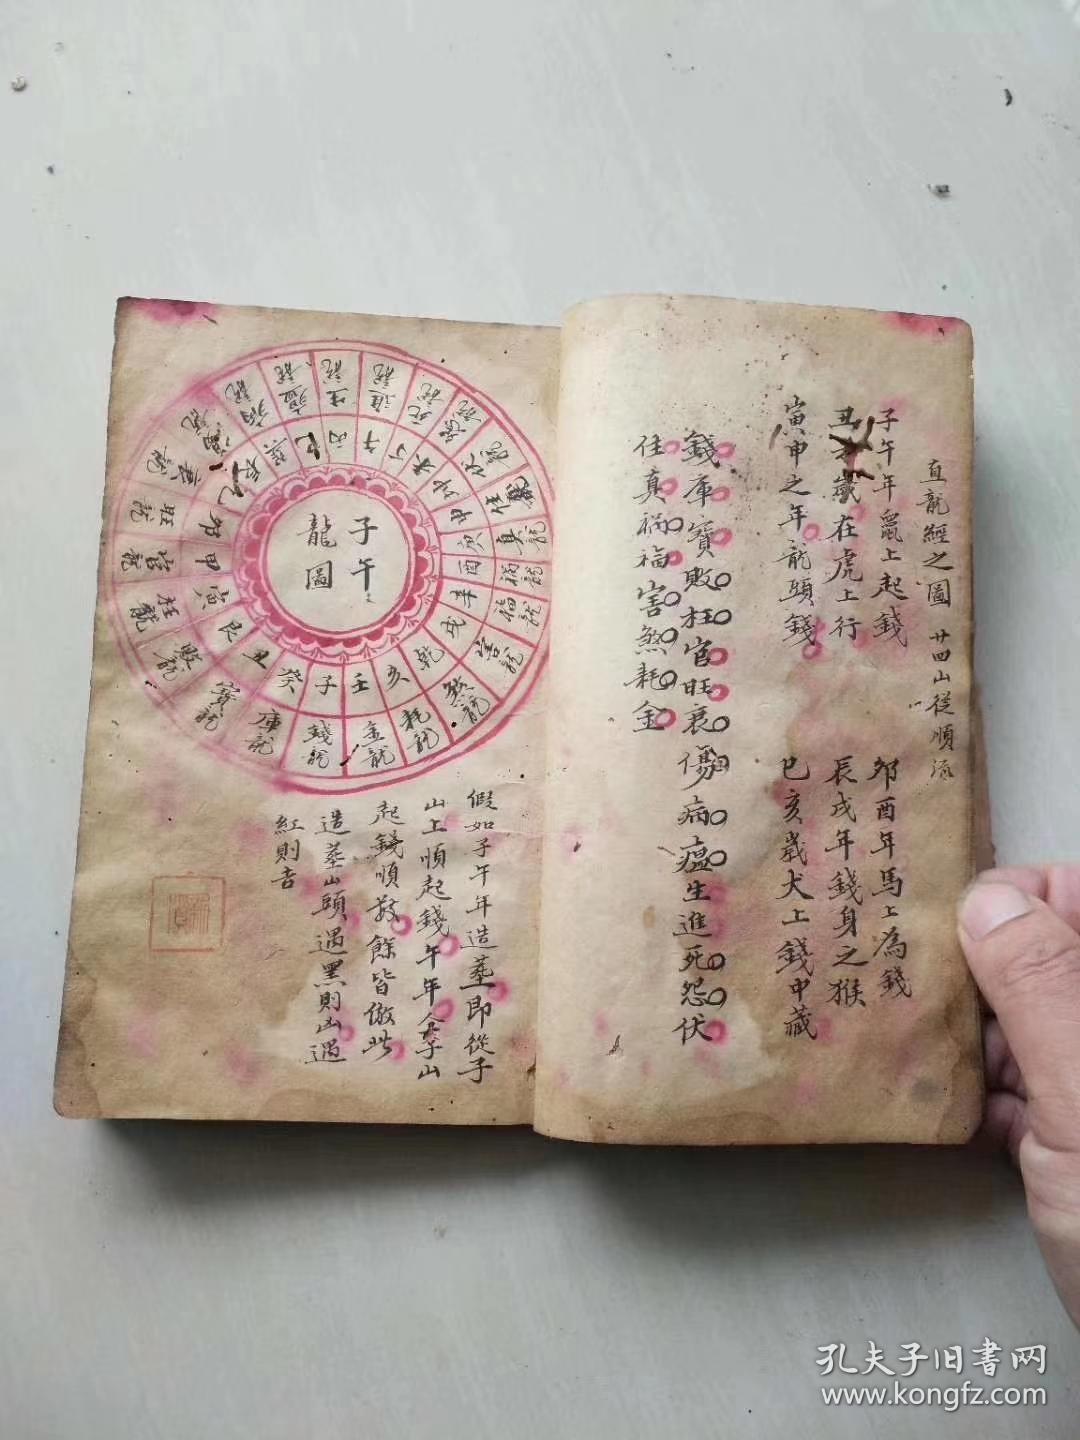 直龍經之圖 廿四山從順流
子午年鼠上起錢 夘酉年馬上為錢
丑 歲在虎上行 辰戌年錢身之猴
寅申之年龍頭錢 巳亥歲犬上錢中藏
錢庫寶敗枉官旺衰傷病瘟生進死怨伏
任真禍福害煞耗金
子午
龍圖
錢龍
庫龍
寶龍
敗龍
枉龍
官龍
旺龍
衰龍
病龍
瘟龍
生龍
進龍
死龍
真龍
禍龍
福龍
害龍
煞龍
耗龍
金龍
子
癸
丑
艮
寅
甲
夘
巳
丙
午
丁
未
坤
申
庚
酉
辛
戌
乾
亥
壬
假如子午年造塟即從子
山上順起錢午年仝子山
起錢順数餘皆倣此
造塟山頭遇黑則凶遇
紅則吉
孔夫子旧書网
www.kongfz.com